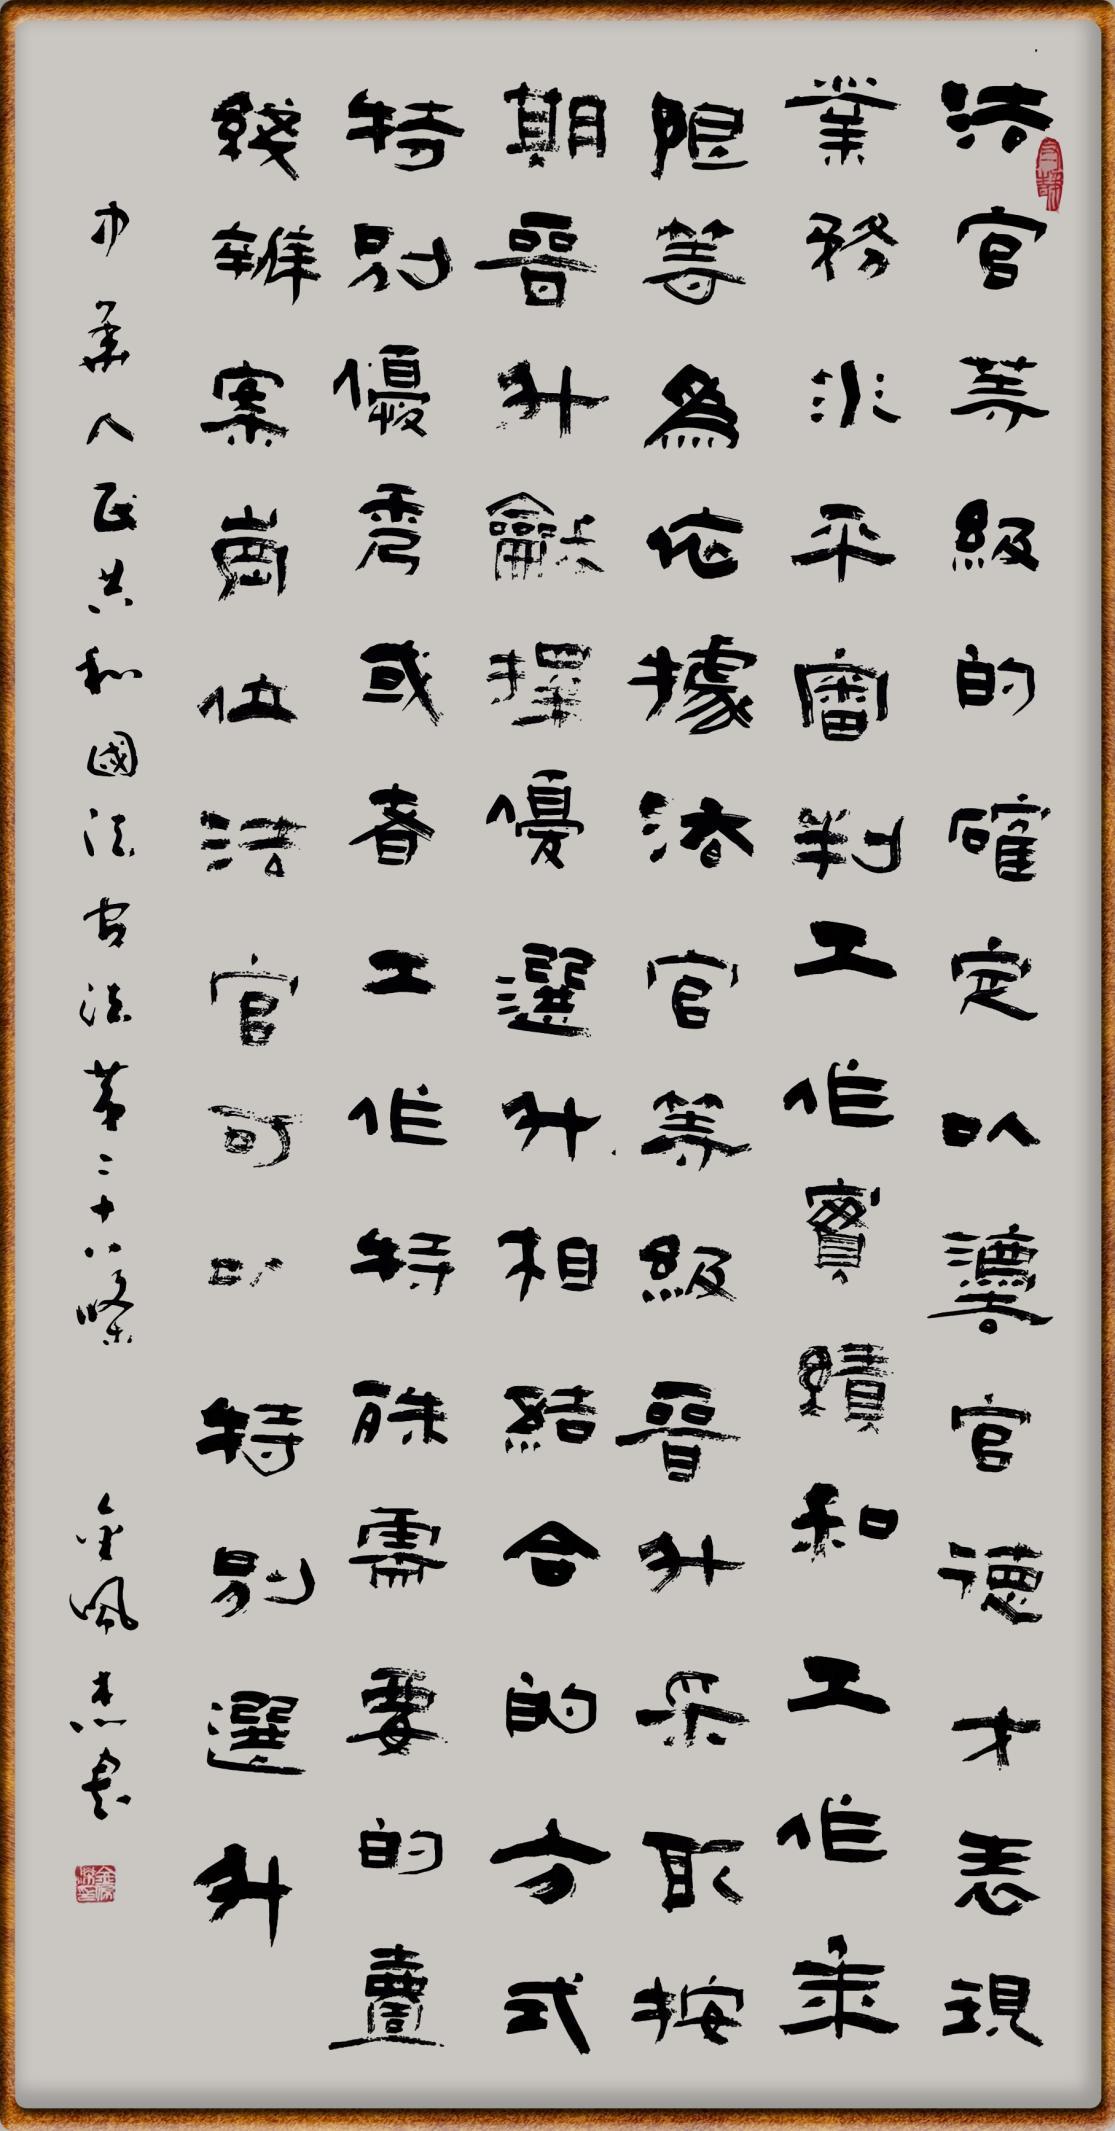 法官等級的確定以灋官德才表現
業務水平審判工作實績和工作年
限等為依據法官等級晉升采取按
期晉升龢擇優選升相結合的方式
特別優秀或者工作特殊需要的壹
綫辦案崗位法官可以特別選升
中華人民共和國法官法第二十八條 金佩杰書